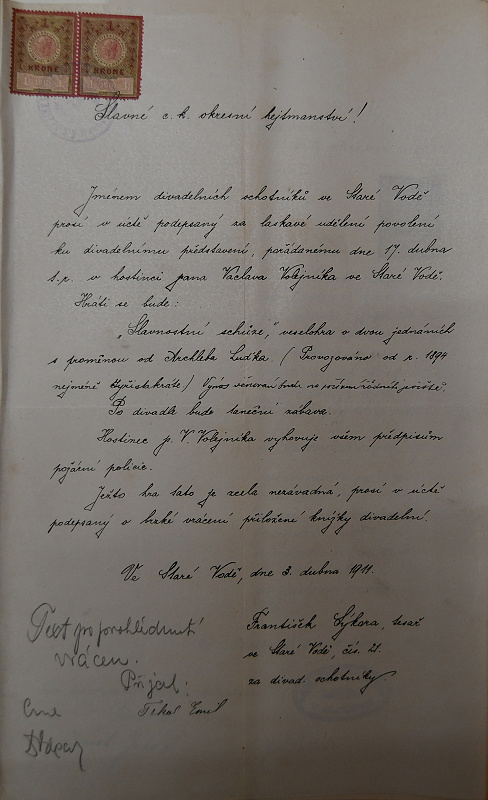 1 1
KRONE KRONE
Slavné c. k. okresní hejtmanství!
Jménem divadelních ochotníků ve Staré Vodě
prosí v úctě podepsaný za laskavé udělení povolení
ku divadelnímu představení, pořádanému dne 17. dubna
t. r. v hostinci pana Václava Volejníka ve Staré Vodě.
Hráti se bude:
„Slavnostní schůze," veselohra o dvou jednáních
s proměnou od Archleba Luďka. (Provozováno od r. 1894
nejméně čtyřistakráte) Výnos věnován bude na pořízení řádného jeviště.
Po divadle bude taneční zábava.
Hostinec p. V. Volejníka vyhovuje všem předpisům
požární policie.
Ježto hra tato je zcela nezávadná, prosí v úctě
podepsaný o brzké vrácení přiložené knížky divadelní.
Ve Staré Vodě, dne 3. dubna 1911.
František Sýkora, tesař
ve Staré Vodě, čís. 21.
za divad. ochotníky
Text po prohlédnutí
vrácen.
Přijal:
Emil